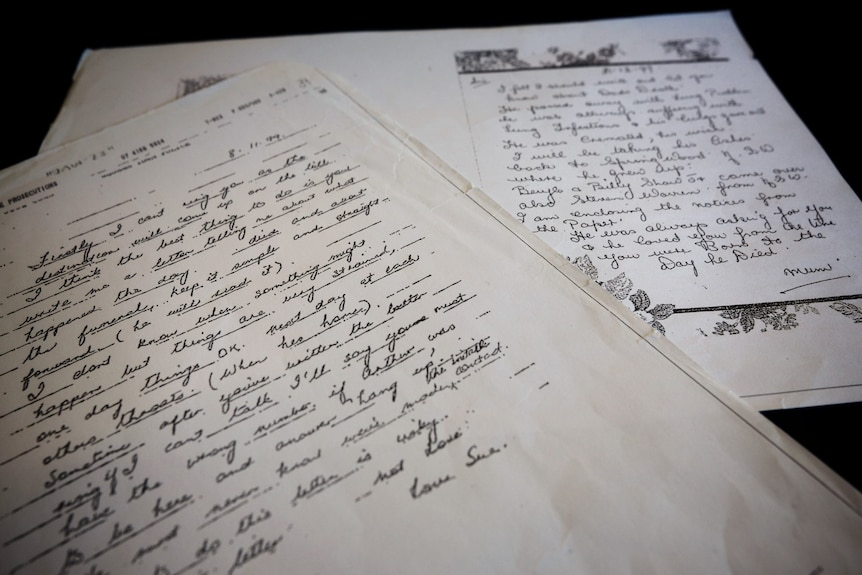 PROSECUTIONS
8.11.99
Firstly I cant ring you as the
destination will come up on the bill.
I think the best thing to do is you
write me a letter telling me about what
happened the day died and about
the funeral, keep it simple and straight-
forward (he will read it).
I dont know when something might
happen but things are very strained,
one day things OK next day at each
others throats (when his home).
Sometime after you've written the letter
ring if I cant talk I'll say you must
have the wrong number if Arthur was
to be here and answer, hang up
must never know we've made contact.
to do this letter is risky.
letter not Love.
Love Sue.
I felt I should write and let you
know about Dads Death.
He passed away with Lung Problem
He was always suffering with
Lung Infections & his lungs gave out
He was Cremated, his wish.
I will be taking his Ashes
back to Springwood. N.S.W
where he grew up.
Beryl & Billy Shaw Jr came over
also Steven Warren from N.S.W.
I am enclosing the notices from
the Paper.
He was always asking for you
& he loved you from the time
you were Born to the
Day he Died.
Mum